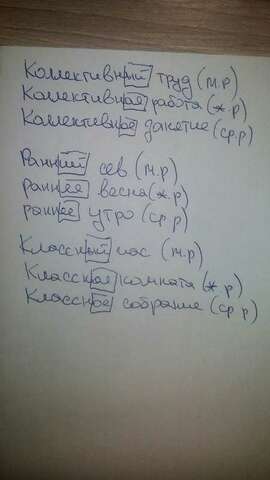 Коллективный труд (м.р)
Коллективная работа (ж.р)
Коллективное занятие (ср.р)
Ранний сев (м.р)
Раннее весна (ж.р)
раннее утро (ср.р)
Классный час (м.р)
Классная комната (ж.р)
Классное собрание (ср.р)